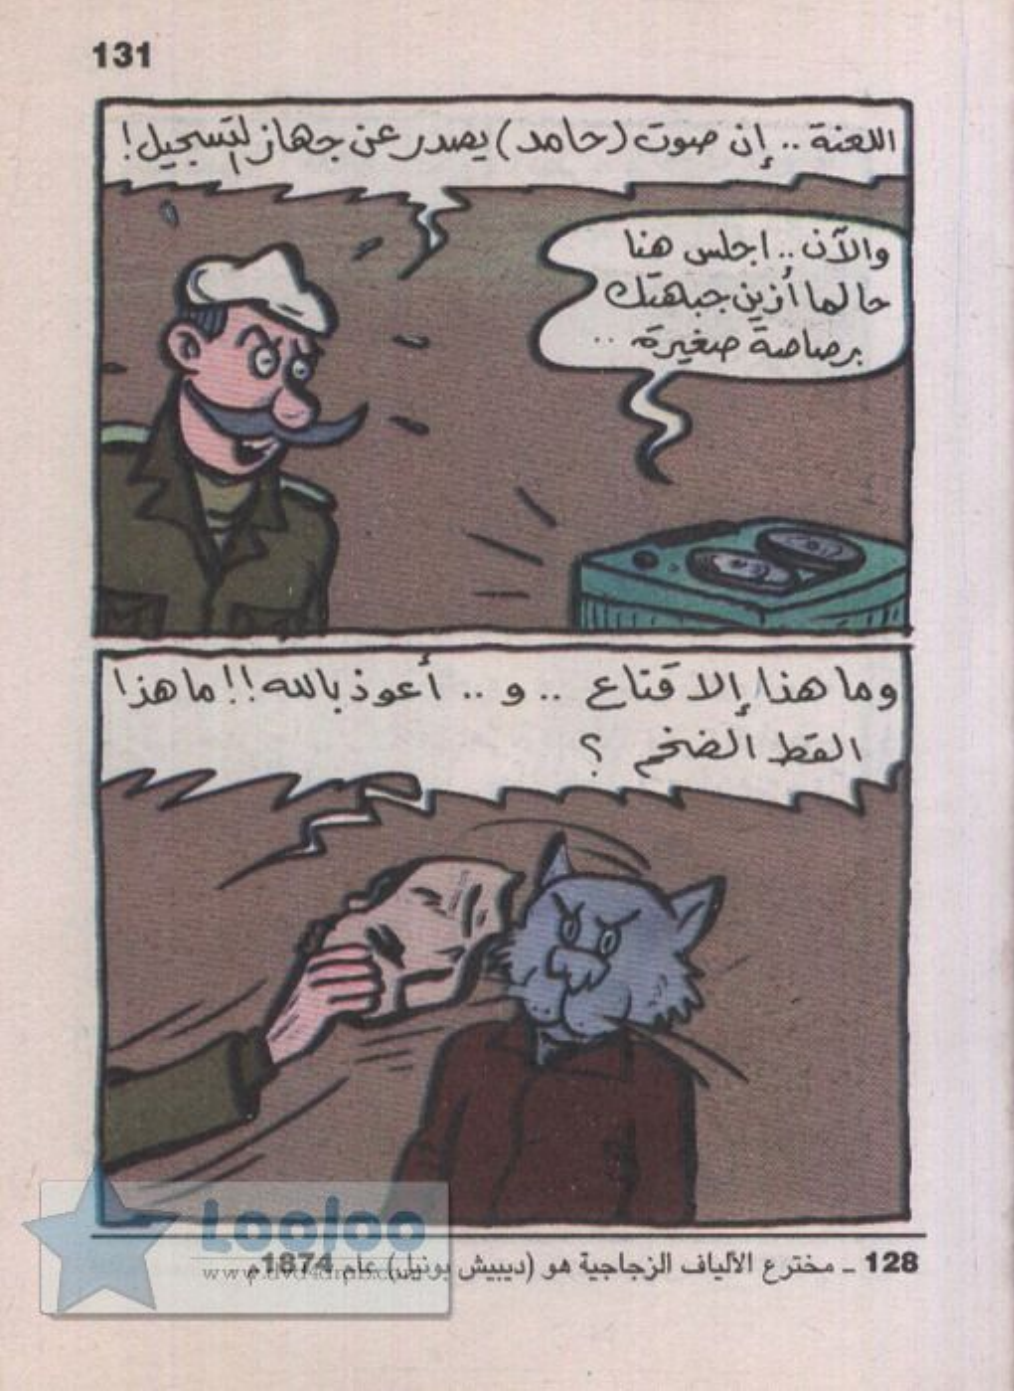 131
اللعنة .. إن صوت (حامد) يصدر عن جهاز لتسجيل!
والآن .. اجلس هنا
حالما أزين جبهتك
برصاصة صغيرة ..
وما هنا إلا قناع .. و .. أعوذ بالله!! ما هذا
القط الضخم ؟
128 ـ مخترع الألياف الزجاجية هو (ديبيش بونيل) عام 1874م
Looloo